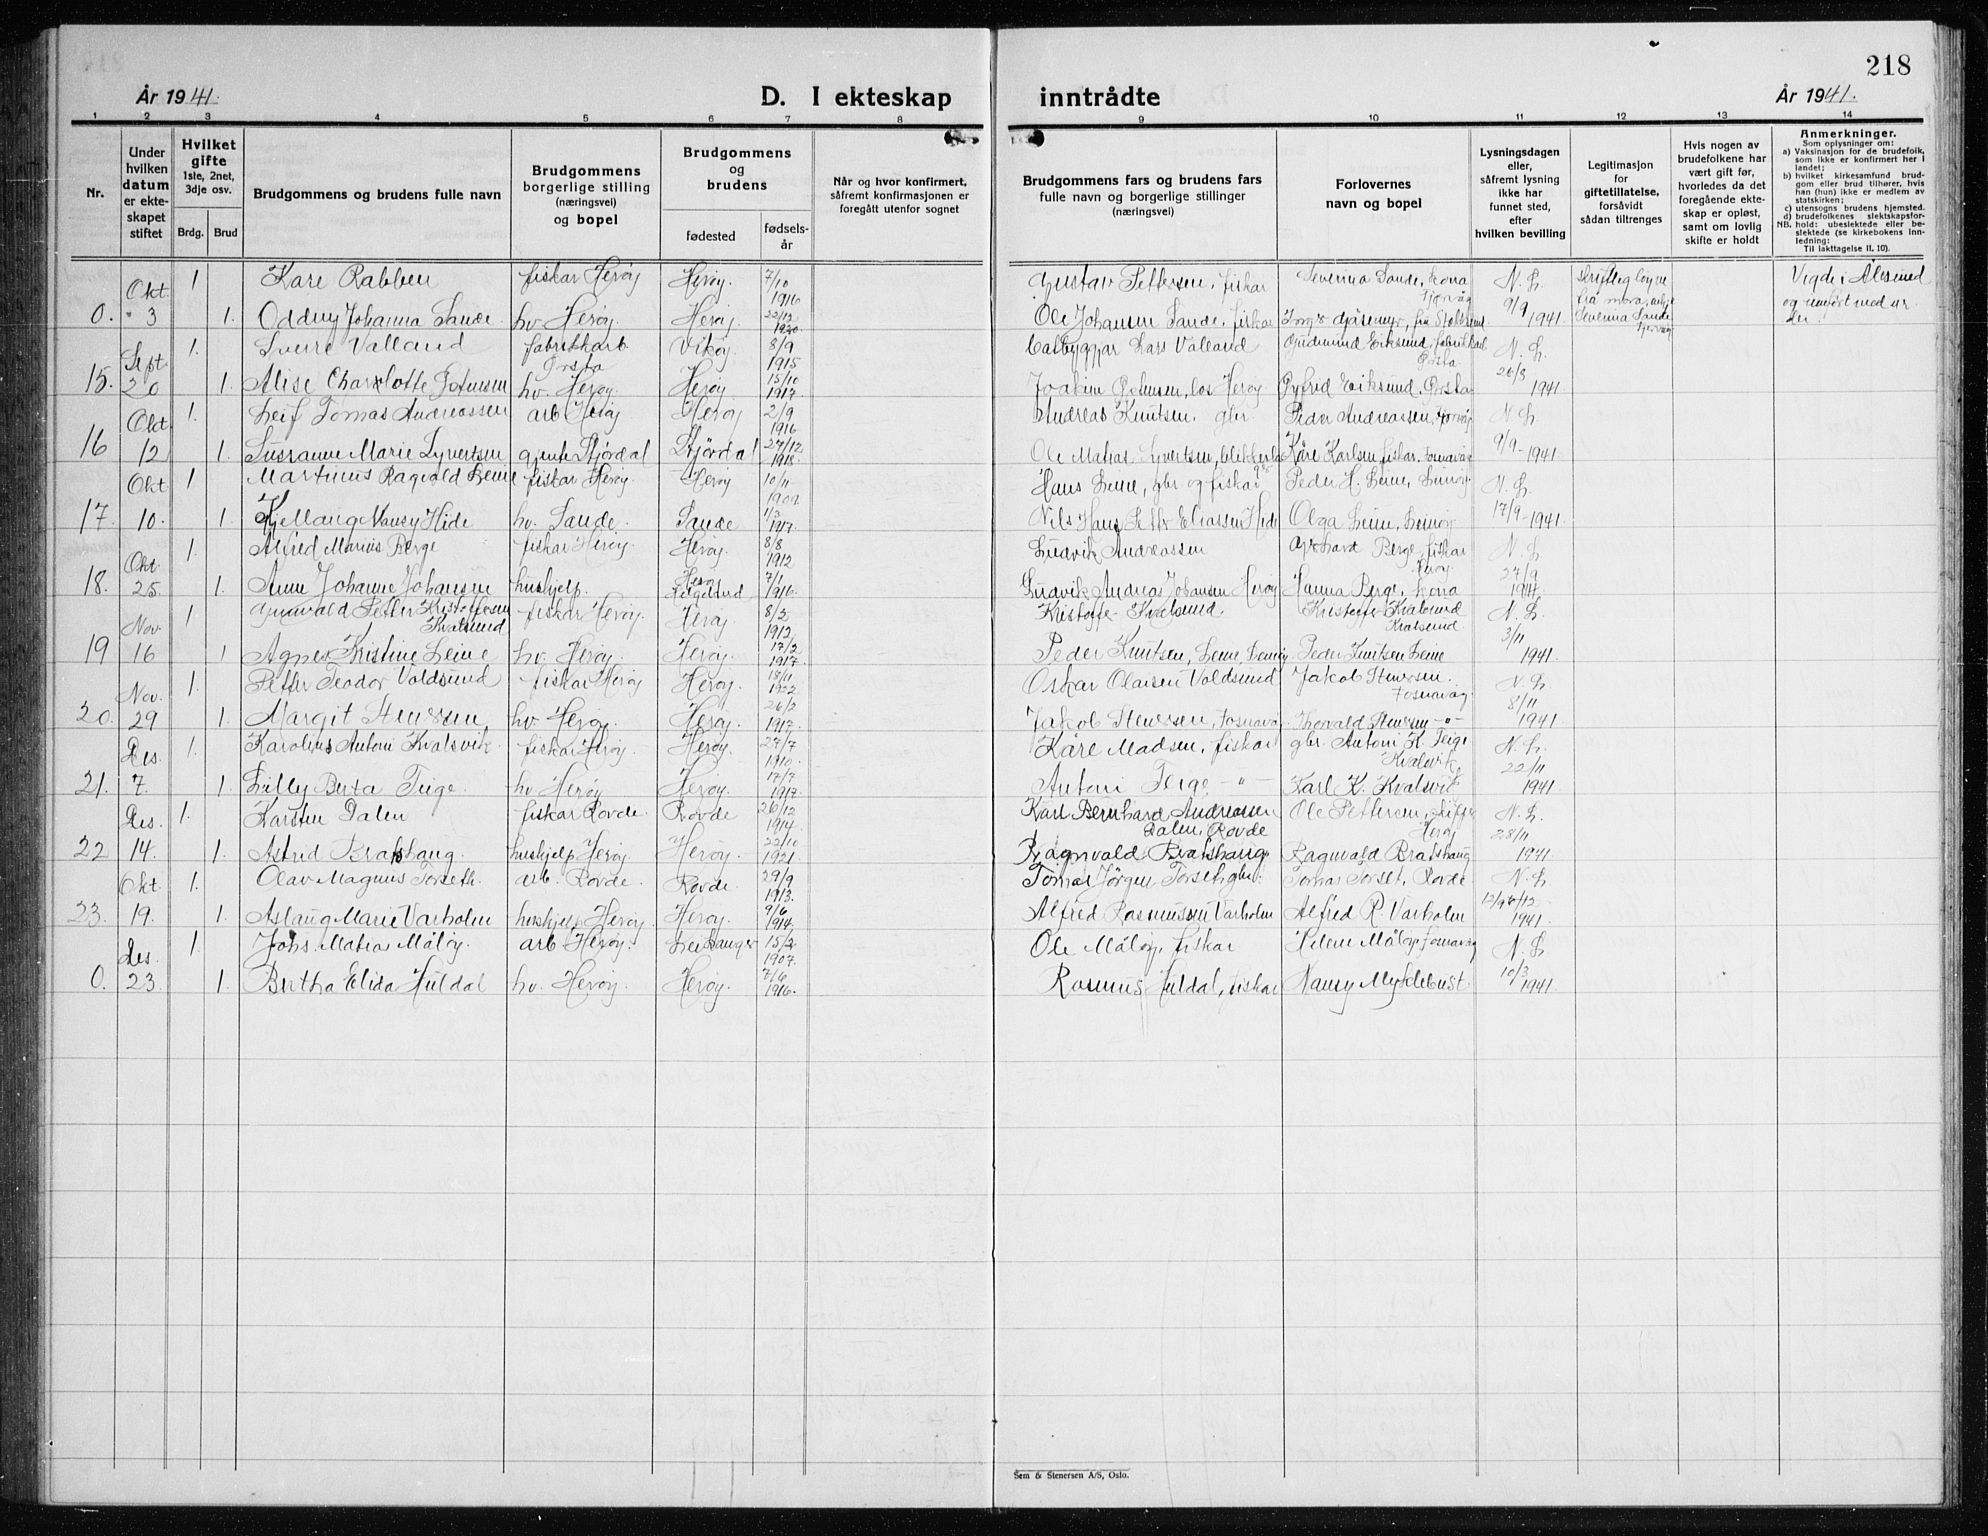 218
År 1941.
D. I ekteskap inntrådte
År 1941.
1 2 3 4 5 6 7 8 9 10 11 12 13 14
Nr.
Under hvilken datum er ekteskapet stiftet
Hvilket gifte 1ste, 2net, 3dje osv.
Brdg. Brud
Brudgommens og brudens fulle navn
Brudgommens borgerlige stilling (næringsvei) og bopel
Brudgommens og brudens
fødested
fødselsår
Når og hvor konfirmert, såfremt konfirmasjonen er foregått utenfor sognet
Brudgommens fars og brudens fars fulle navn og borgerlige stillinger (næringsvei)
Forlovernes navn og bopel
Lysningsdagen eller, såfremt lysning ikke har funnet sted, efter hvilken bevilling
Legitimasjon for giftetillatelse, forsåvidt sådan tiltrenges
Hvis nogen av brudefolkene har vært gift før, hvorledes da det foregående ekteskap er opløst, samt om lovlig skifte er holdt
Anmerkninger.
Som oplysninger om:
a) Vaksinasjon for de brudefolk, som ikke er konfirmert her i landet;
b) hvilket kirkesamfund brudgom eller brud tilhører, hvis han (hun) ikke er medlem av statskirken;
c) utensogns brudens hjemsted.
d) brudefolkenes slektskapsforhold: ubeslektede eller beslektede (se kirkebokens innledning:
NB. Til Iakttagelse II. 10).
Okt. 1. Kåre Rabben fiskar Herøy Herøy. 7/10 1916 Gustav Pettersen, fiskar Severina Sande, kona N. L. Vigde i Ålesund
0. " 3 1. Oddny Johanna Sande. hv. Herøy. Herøy 22/12 1920 Ole Johansen Sande, fiskar 9/9 1941. Severina Sande
Sept. 1. Sverre Valland fabrikkarb. Ørsta Vikøy. 8/9 1915 Lars Valland Gudmund Eiksund, Ørsta N. L.
15. 20 1. Alise Charlotte hv. Herøy. Herøy 15/10 1917. Joakim los Herøy Eiksund, Ørsta 26/3 1941.
Okt 1. Leif Tomas Andreassen arb Herøy Herøy 2/9 1916 Andreas Knutsen, gbr. Peder Andreassen, N. L.
16 12 1. Susanne Marie Syvertsen gjente Stjørdal Stjørdal 27/12 1918. Ole Matias Syvertsen, Kåre Karlsen, fiskar, Fosnavåg 9/9-1941
Okt 1 Martinus Ragvald Leine fiskar Herøy. Herøy 10/11 Hans Leine, gbr og fiskar Peder H. Leine, N. L.
17. 10. 1. Nancy Hide hv. Sande. Sande 1/3 1917. Nils Hans Petter Eliassen Hide Olga Leine, 17/9-1941
Okt. 1. Alfred Marius Berge fiskar Herøy. Herøy. 8/8 1912 Ludvik Andreassen Berge, fiskar Herøy. N. L.
18. 25. 1. Anne Johanne Johansen hushjelp. Herøy 7/1 1916. Ludvik Andreas Johansen Herøy Hanna Berge, kona 27/9 1941.
Nov. 1 Petter Kristoffersen Kvalsund fiskar Herøy. Herøy. 8/2 1912 Kristoffer Kvalsund Kristoffer Kvalsund Kvalsund. N. L.
19 16 1 Agnes Kristine Leine hv. Herøy. Herøy. 17/2 1917. Peder Knutsen, Leine, Peder Knutsen Leine 3/11 1941.
Nov. 1. Petter Teodor Voldsund fiskar Herøy Herøy. 18/11 1922 Oskar Olaisen Voldsund Jakob Stensen. Fosnavåg N. L.
20. 29 1. Margit Stensen hv. Herøy. Herøy. 26/2 1917. Jakob Stensen, Fosnavåg Thorvald Stensen -"- 8/11 1941
Des. 1. Karolius Antoni Kvalsvik. fiskar Herøy Herøy. 27/7 1910. Kåre Madsen, fiskar gbr. Antoni K. Teige Kvalsvik N. L.
21. 7. 1. Lilly Berta Teige. hv Herøy Herøy. 17/7 1917. Antoni Teige -"- Karl K. Kvalsvik 22/11 1941
Des. 1. Karsten Dalen fiskar Rovde. Rovde 26/12 1914. Karl Bernhard Andreassen Dalen, Rovde Ole Pettersen, Herøy N. L.
22 14. 1. Astrid Brakshaug. hushjelp Herøy. Herøy. 22/10 1921. Ragnvald Brakshaug. Ragnvald Brakshaug 28/11 1941
Okt. 1. Olav Magnus Torseth. arb. Rovde. Rovde. 29/9 1913. Tomas Jørgen Torseth gbr. Tomas Torset, Rovde. N. L.
23. 19. 1. Aslaug Marie Varholm hushjelp Herøy Herøy. 9/6 1914. Alfred Rasmussen Varholm Alfred R. Varholm 1941.
Des. 1. Johs. Matias Måløy. arb Herøy. 1907. Ole Måløy, fiskar Helene Måløy, Fosnavåg N. L.
0. 23. 1. Bertha Elida Huldal hv. Herøy. Herøy. 7/6 1916. Rasmus Huldal, fiskar Nancy Myklebust. 10/3 1941.
Sem & Stenersen A/S, Oslo.